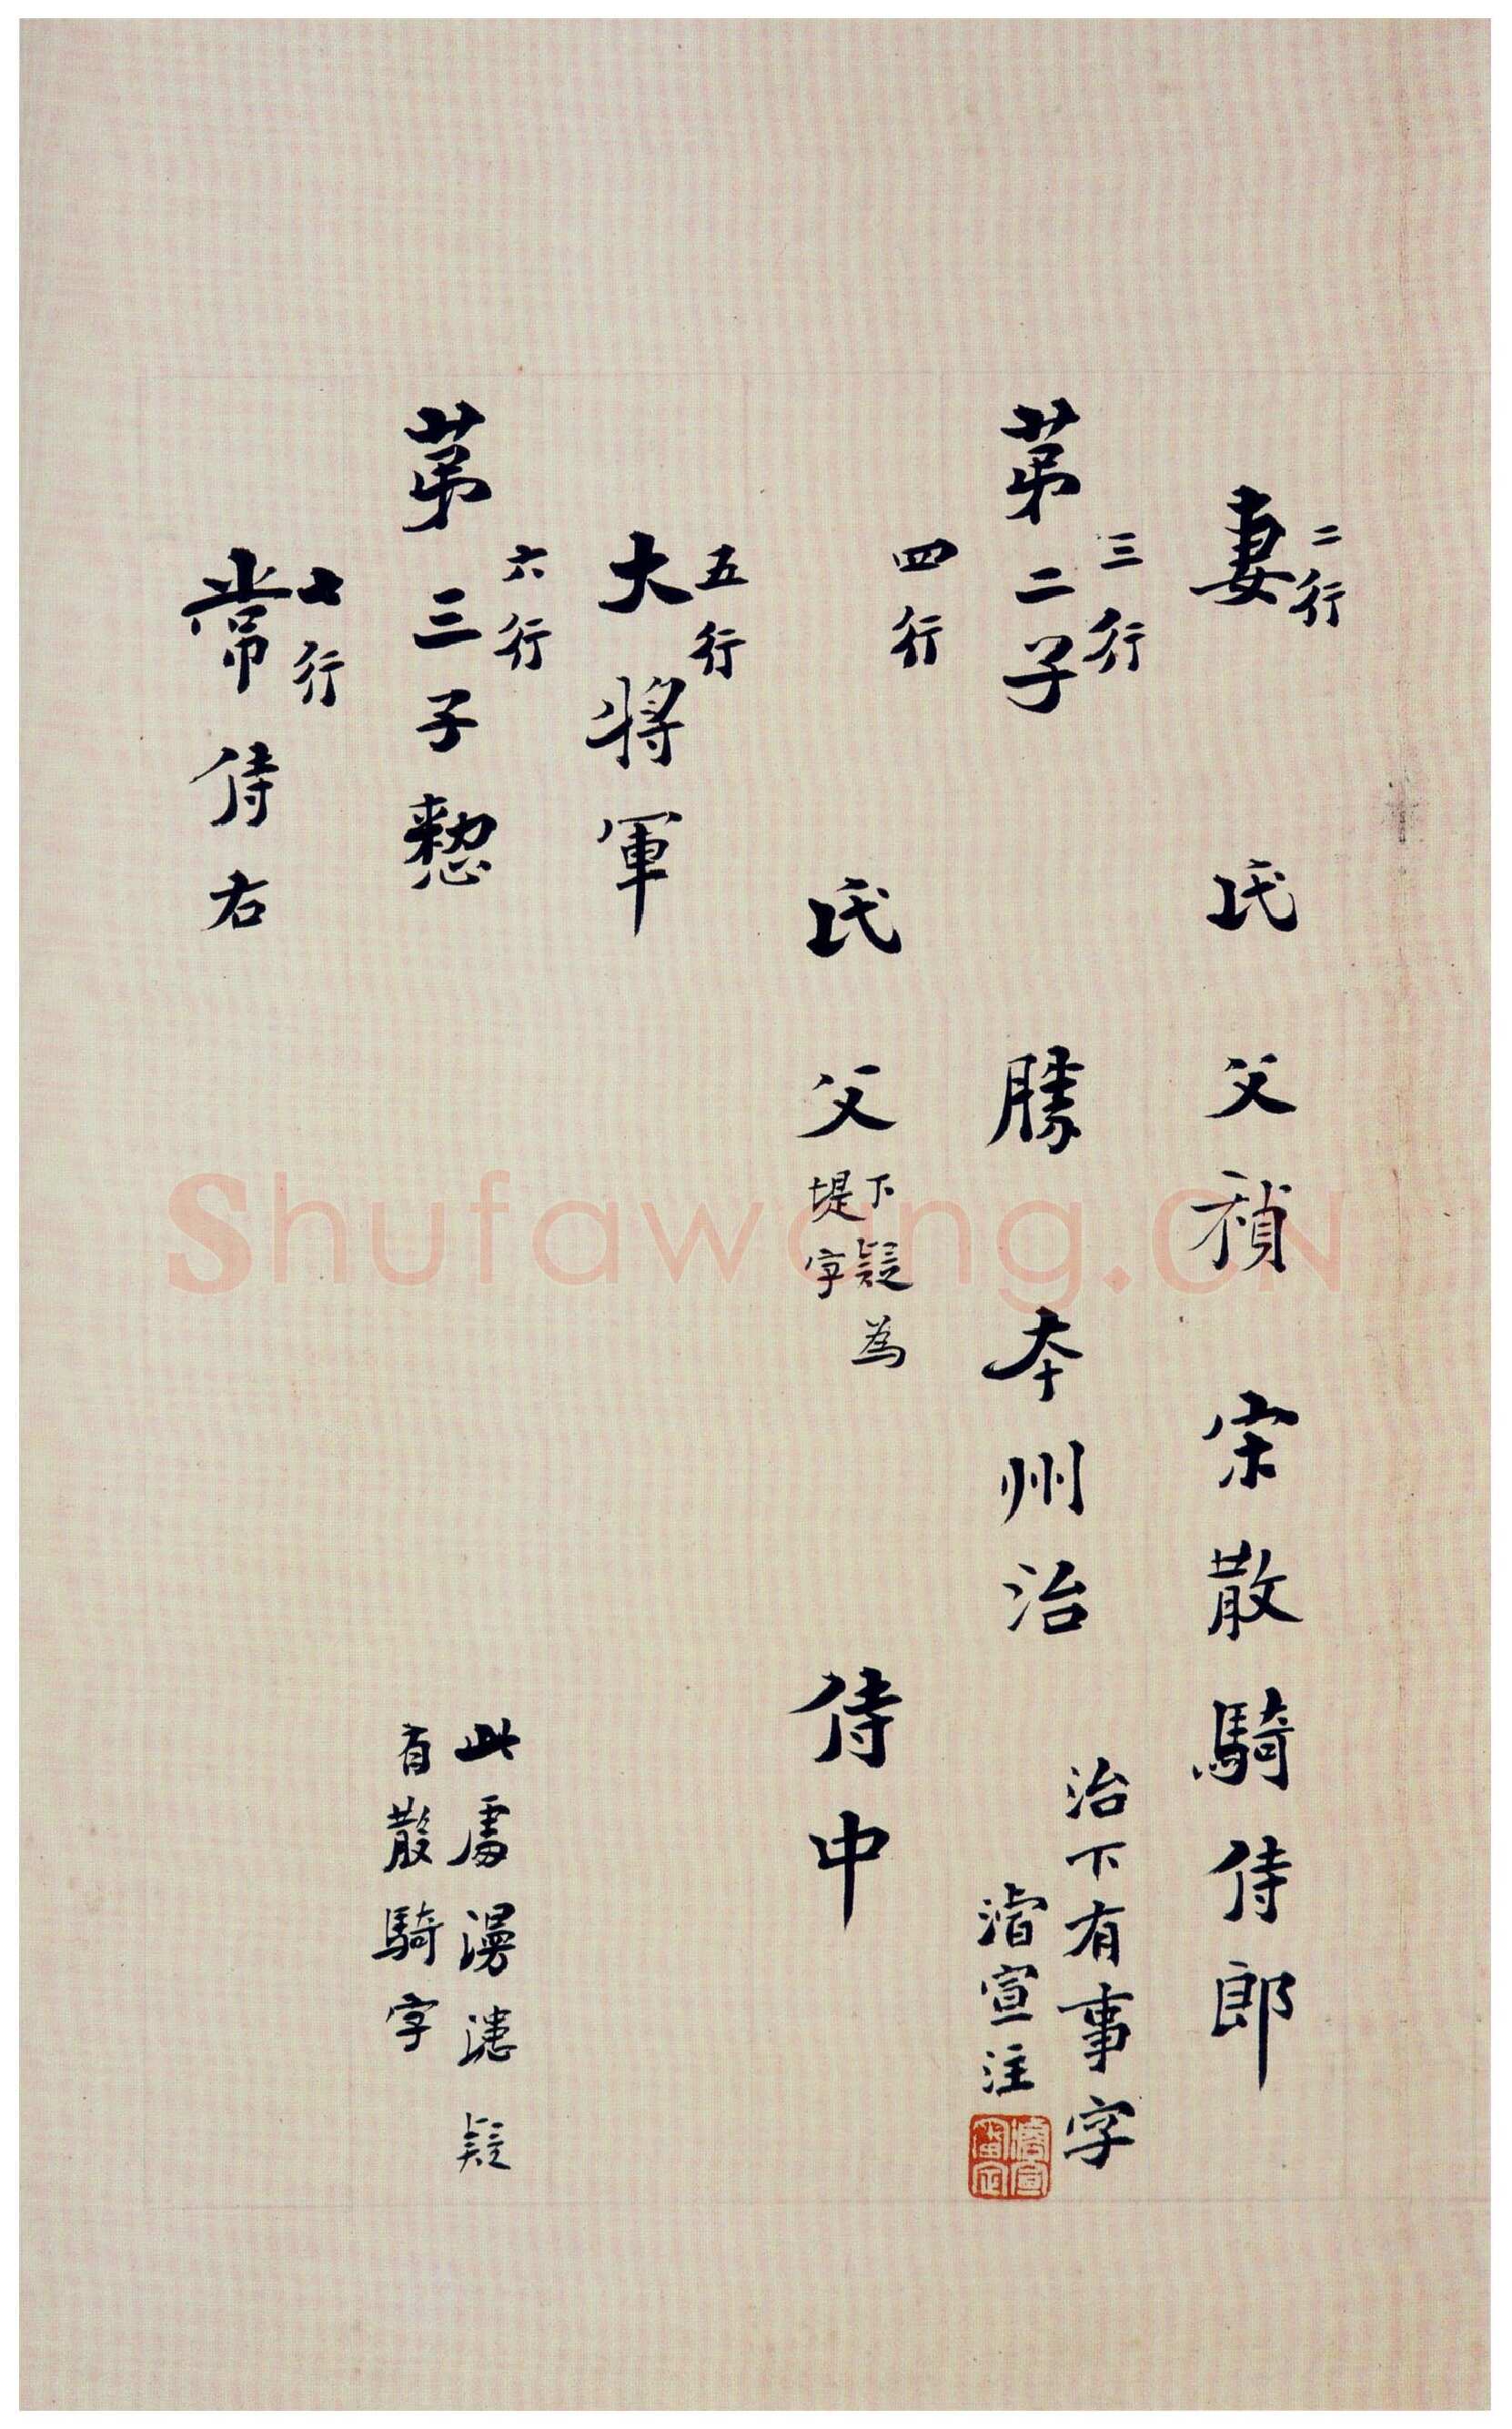 二行
妻 氏 父禎 宋散騎侍郎
三行
苐二子 勝 夲州治
治下有事字
濬宣注
四行
氏 父 侍中
下疑為
堤字
五行
大將軍
六行
苐三子愸
此處漫漶疑
有散騎字
七行
常侍右
Shufawang.CN